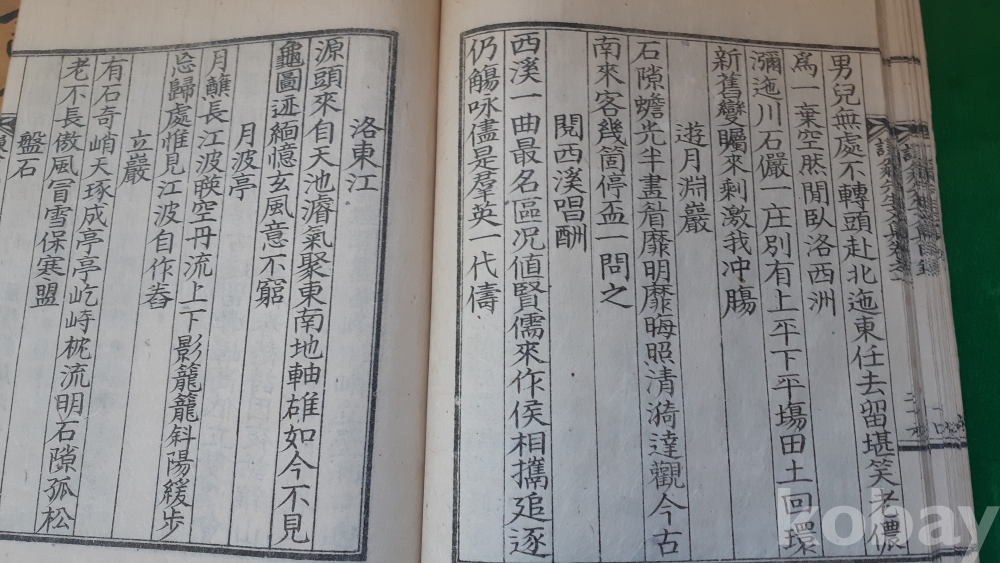 男兒無處不轉頭赴北迤東任去留堪笑老儂
爲一棄空然閒臥洛西洲
瀰迤川石儼一庄別有上平下平塲田土回環
新舊變矚來剩激我冲膓
遊月淵巖
石隙蟾光半晝昏靡明靡晦照清漪達觀今古
南來客幾箇停盃一問之
閱西溪唱酬
西溪一曲最名區况値賢儒來作侯相攜追逐
仍觴咏儘是羣英一代儔
洛東江
源頭來自天池濬氣聚東南地軸雄如今不見
龜圖迹緬憶玄風意不窮
月波亭
月蘸長江波暎空丹流上下影籠籠斜陽緩步
忘歸處惟見江波自作舂
立巖
有石奇峭天琢成亭亭屹峙枕流明石隙孤松
老不長傲風冒雪保寒盟
盤石
kobay